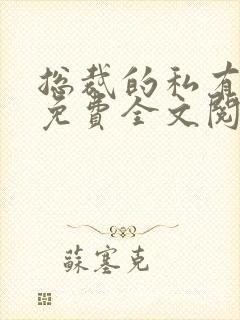 总裁的私有
免費全文閱
蘇塞克